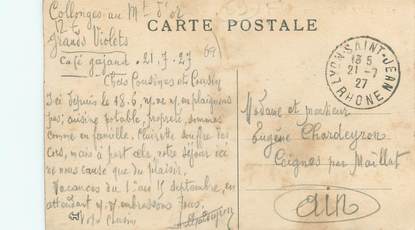 Collonges au Mt d'or
CARTE POSTALE
Grands Violets
69
Café gajand. 21.7.27
Chers Cousines et Cousin
Ici depuis le 18.6, n. ne n. en plaignons
pas; cuisine potable, propreté, sommes
comme en famille. Clairette souffre des
cors, mais à part cela, notre séjour ici
ne nous cause que du plaisir.
Vacances du 1 au 15 septembre, en
attendant n. v. embrassons tous.
Votre Cousin
LYON-SAINT-JEAN
13 5
21 -7
27
RHONE
Madame et monsieur
Eugène Chardeyron
Ceignes par Maillat
ain